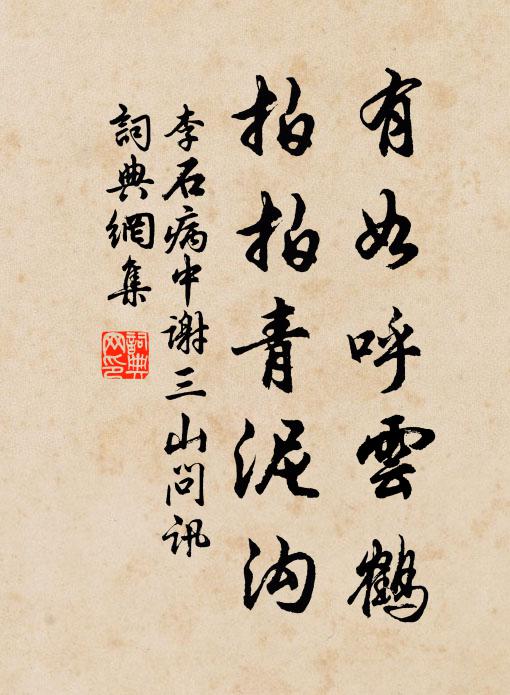 有如呼雲鶴
拍拍青泥沟
李石病中谢三山问讯
詞典網集
詞典网印